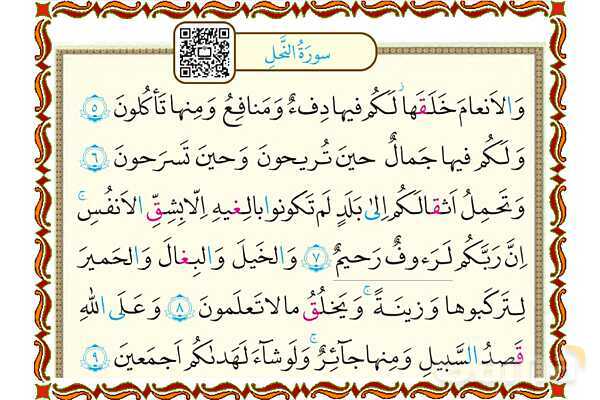 سورَةُ النَّحلِ
وَالاَنعامَ خَلَقَها ۖ لَكُم فيها دِفءٌ وَ مَنافِعُ وَ مِنها تَأكُلونَ ﴿٥﴾
وَ لَكُم فيها جَمالٌ حينَ تُريحونَ وَ حينَ تَسرَحونَ ﴿٦﴾
وَ تَحمِلُ اَثقالَكُم اِلىٰ بَلَدٍ لَم تَكونوا بالِغيهِ اِلّا بِشِقِّ الاَنفُسِ ۚ
اِنَّ رَبَّكُم لَرَءوفٌ رَحيمٌ ﴿٧﴾ وَ الخَيلَ وَ البِغالَ وَ الحَميرَ
لِتَركَبوها وَ زينَةً ۚ وَ يَخلُقُ ما لا تَعلَمونَ ﴿٨﴾ وَ عَلَى اللهِ
قَصدُ السَّبيلِ وَ مِنها جآئِرٌ ۚ وَ لَو شآءَ لَهَدىٰكُم اَجمَعينَ ﴿٩﴾